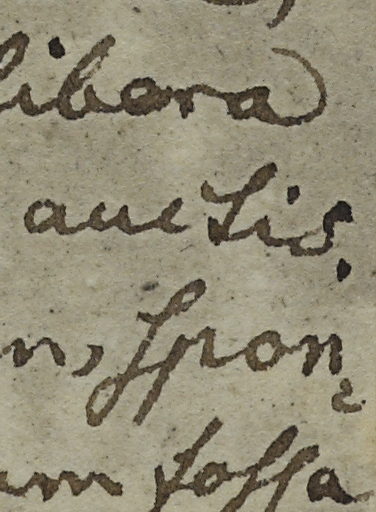 libera)
auctis.
n, spon-
um fossa